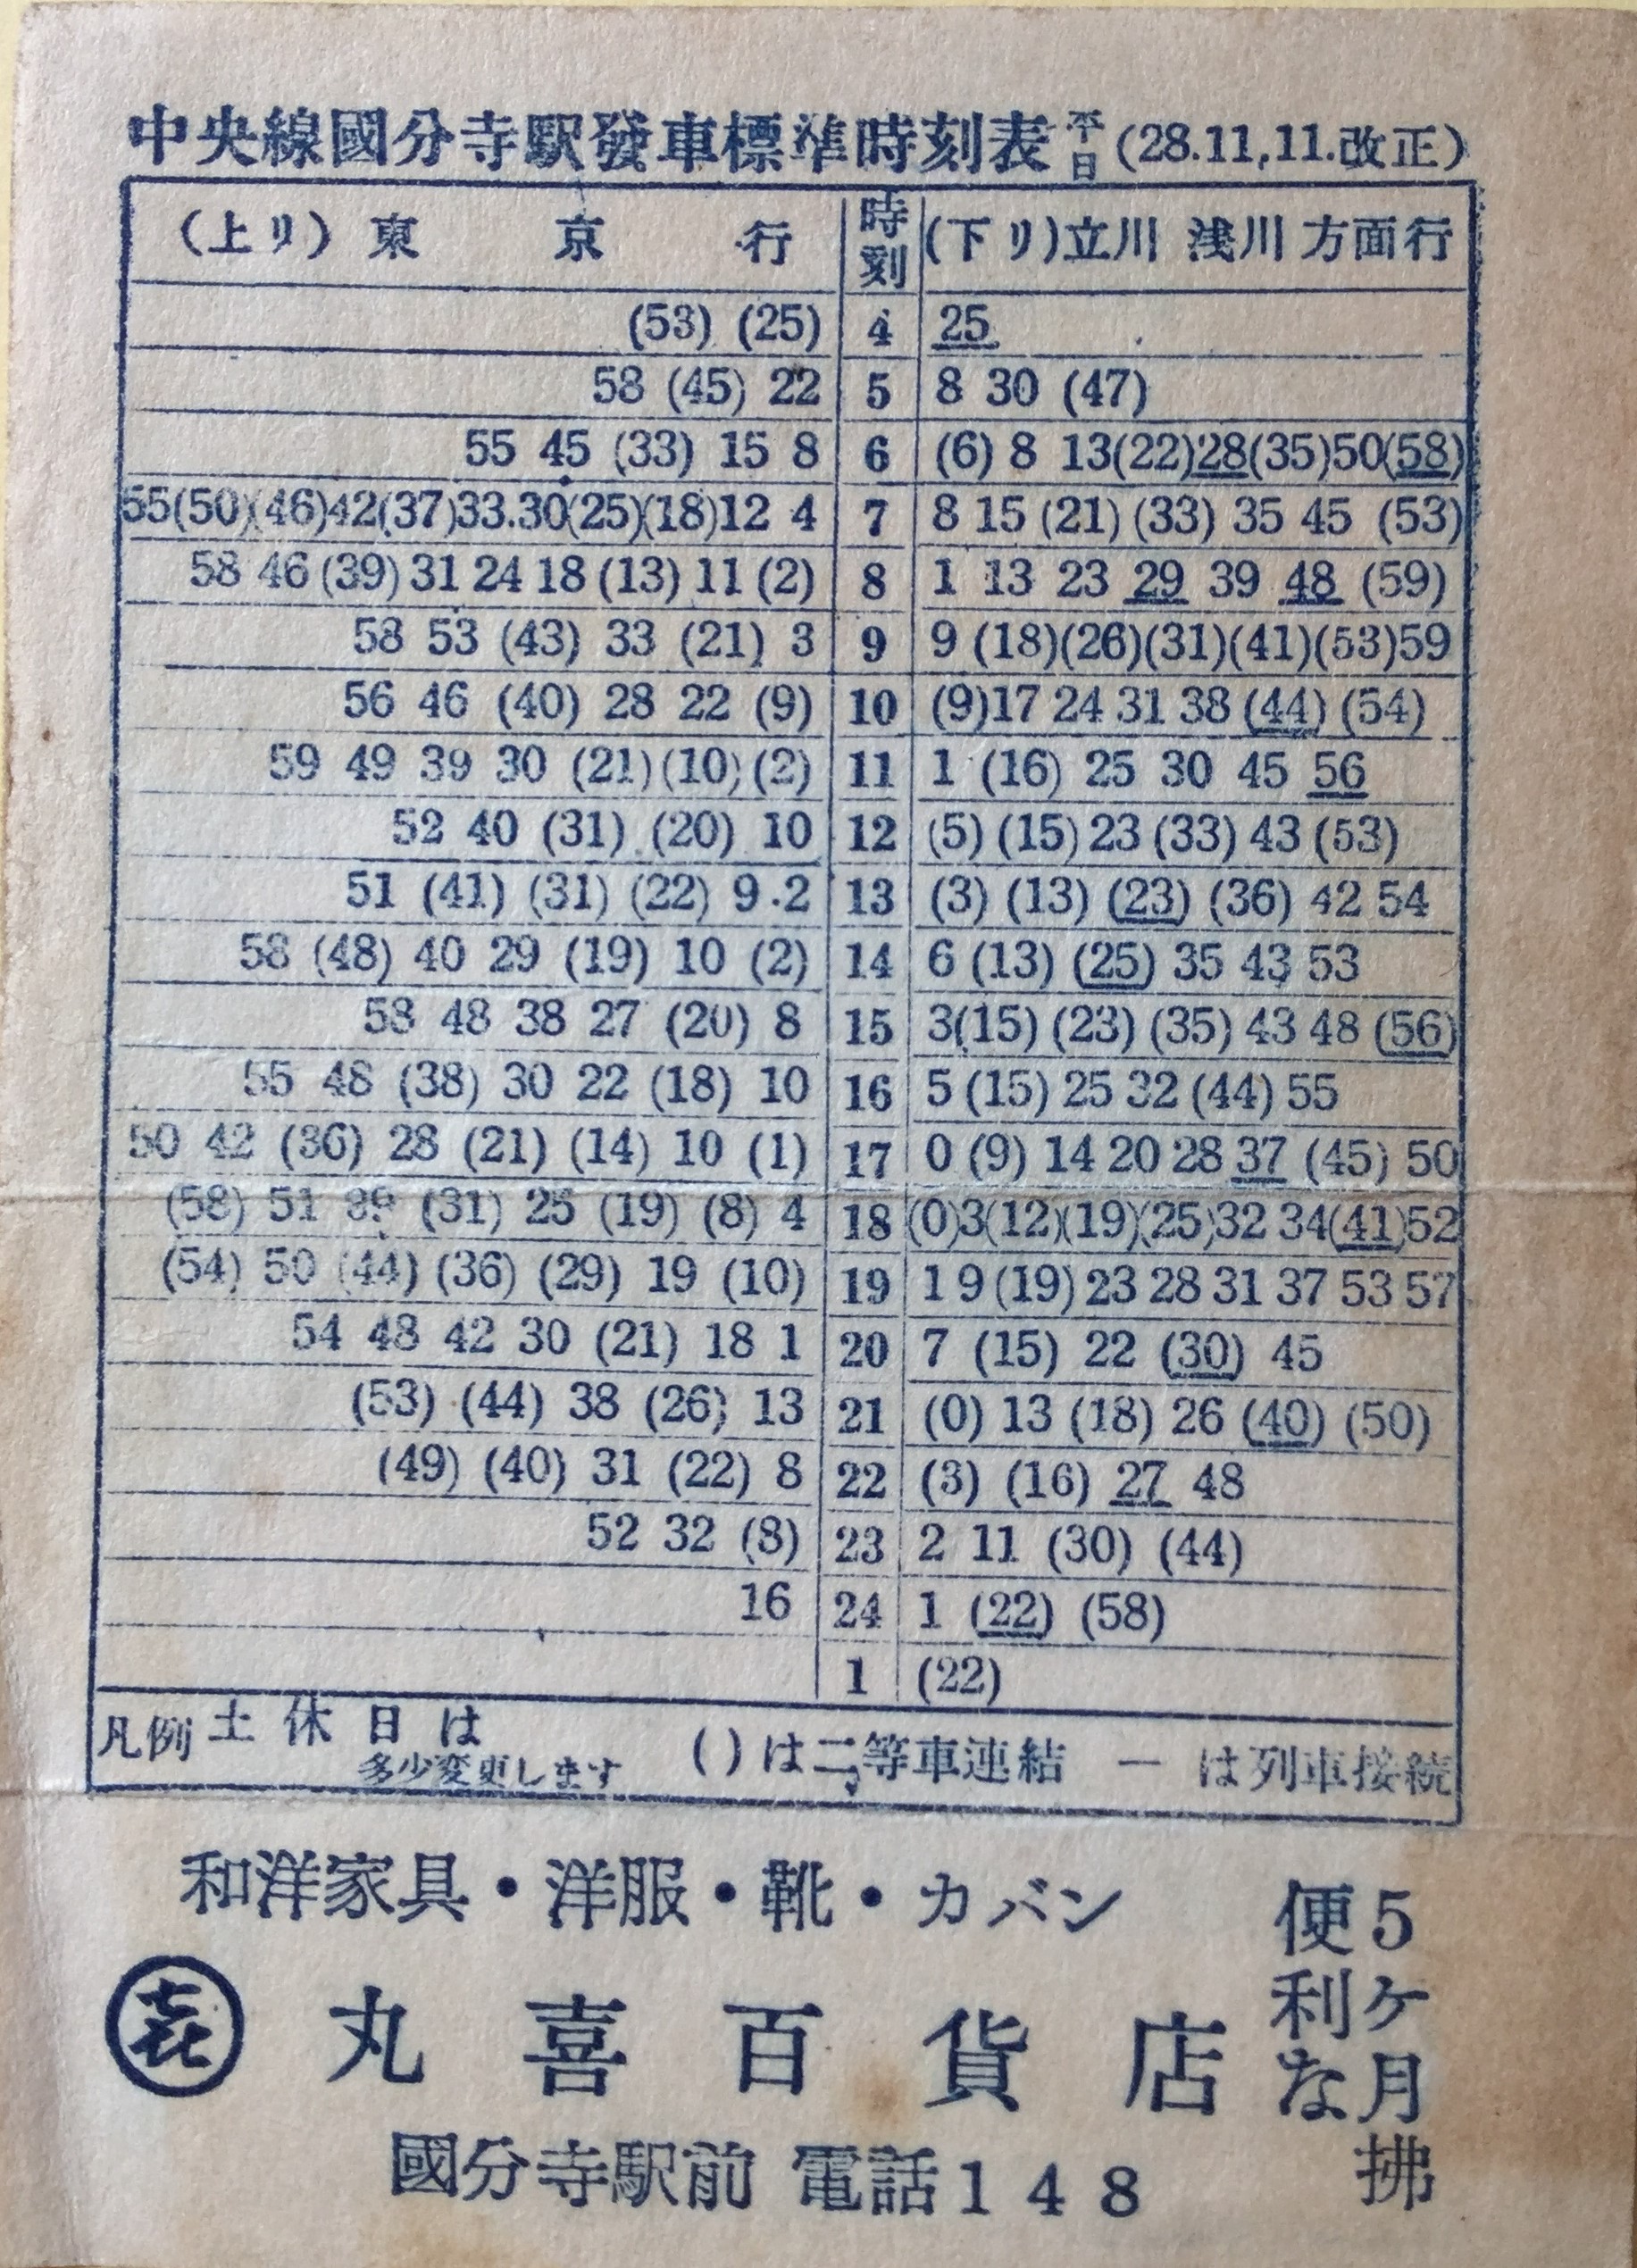 中央線國分寺駅發車標準時刻表 平日 (28.11,11.改正)
(上リ) 東京行 時刻 (下リ)立川 浅川 方面行
(53) (25) 4 25
58 (45) 22 5 8 30 (47)
55 45 (33) 15 8 6 (6) 8 13(22)28(35)50(58)
55(50)(46)42(37)33.30(25)(18)12 4 7 8 15 (21) (33) 35 45 (53)
58 46 (39) 31 24 18 (13) 11 (2) 8 1 13 23 29 39 48 (59)
58 53 (43) 33 (21) 3 9 9 (18)(26)(31)(41)(53)59
56 46 (40) 28 22 (9) 10 (9)17 24 31 38 (44) (54)
59 49 39 30 (21) (10) (2) 11 1 (16) 25 30 45 56
52 40 (31) (20) 10 12 (5) (15) 23 (33) 43 (53)
51 (41) (31) (22) 9 .2 13 (3) (13) (23) (36) 42 54
58 (48) 40 29 (19) 10 (2) 14 6 (13) (25) 35 43 53
58 48 38 27 (20) 8 15 3(15) (23) (35) 43 48 (56)
55 48 (38) 30 22 (18) 10 16 5 (15) 25 32 (44) 55
50 42 (36) 28 (21) (14) 10 (1) 17 0 (9) 14 20 28 37 (45) 50
(58) 51 39 (31) 25 (19) (8) 4 18 (0)3(12)(19)(25)32 34(41)52
(54) 50 (44) (36) (29) 19 (10) 19 1 9 (19) 23 28 31 37 53 57
54 48 42 30 (21) 18 1 20 7 (15) 22 (30) 45
(53) (44) 38 (26) 13 21 (0) 13 (18) 26 (40) (50)
(49) (40) 31 (22) 8 22 (3) (16) 27 48
52 32 (8) 23 2 11 (30) (44)
16 24 1 (22) (58)
1 (22)
凡例 土休日は 多少変更します ( ) は二等車連結 ー は列車接続
和洋家具・洋服・靴・カバン
㐂 丸喜百貨店
國分寺駅前 電話148
5ヶ月拂
便利な